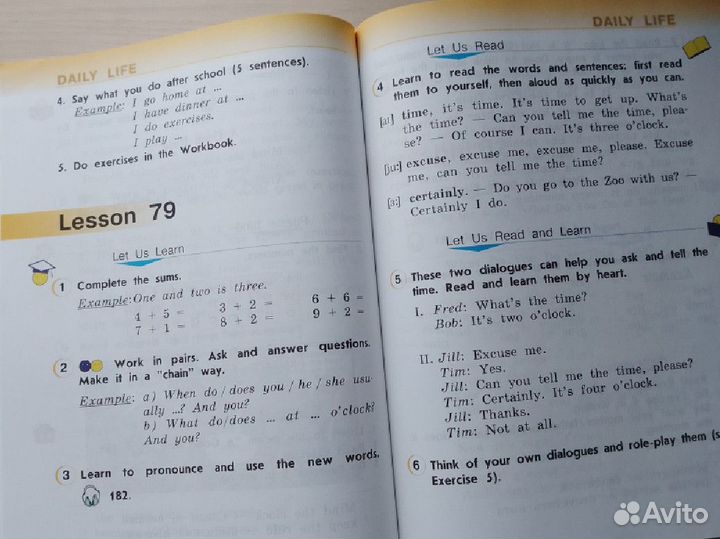 DAILY LIFE
4. Say what you do after school (5 sentences).
Example: I go home at ...
I have dinner at ...
I do exercises.
I play ...
5. Do exercises in the Workbook.
Lesson 79
Let Us Learn
1 Complete the sums.
Example: One and two is three.
4 + 5 = 3 + 2 = 6 + 6 =
7 + 1 = 8 + 2 = 9 + 2 =
2 Work in pairs. Ask and answer questions.
Make it in a "chain" way.
Example: a) When do/does you/he/she usu
ally ...? And you?
b) What do/does ... at ... o'clock?
And you?
3 Learn to pronounce and use the new words.
182.
DAILY LIFE
Let Us Read
4 Learn to read the words and sentences: first read
them to yourself, then aloud as quickly as you can.
[aɪ] time, it's time. It's time to get up. What's
the time? — Can you tell me the time, plea-
se? — Of course I can. It's three o'clock.
[ju:] excuse, excuse me, excuse me, please. Excuse
me, can you tell me the time?
[ɜ:] certainly. — Do you go to the Zoo with us? —
Certainly I do.
Let Us Read and Learn
5 These two dialogues can help you ask and tell the
time. Read and learn them by heart.
I. Fred: What's the time?
Bob: It's two o'clock.
II. Jill: Excuse me.
Tim: Yes.
Jill: Can you tell me the time, please?
Tim: Certainly. It's four o'clock.
Jill: Thanks.
Tim: Not at all.
6 Think of your own dialogues and role-play them (s
Exercise 5).
Avito